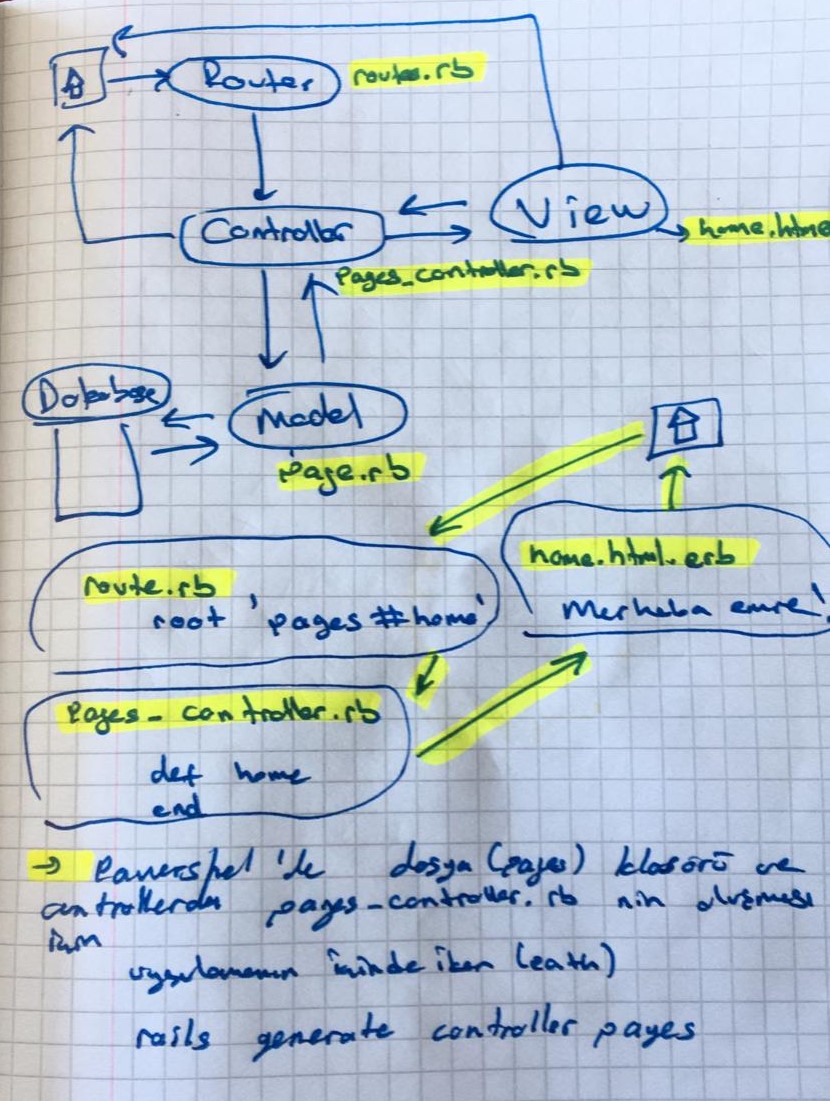 Router routes.rb
View
Controller home.html
Pages_controller.rb
Database
Model
Page.rb
home.html.erb
route.rb
Merhaba emre!
root 'pages#home'
Pages-controller.rb
def home
end
→ Powershel'de dosya (pages) klasörü ve
controllerda pages-controller.rb nin oluşması
için
uygulamanın içinde iken
rails generate controller pages